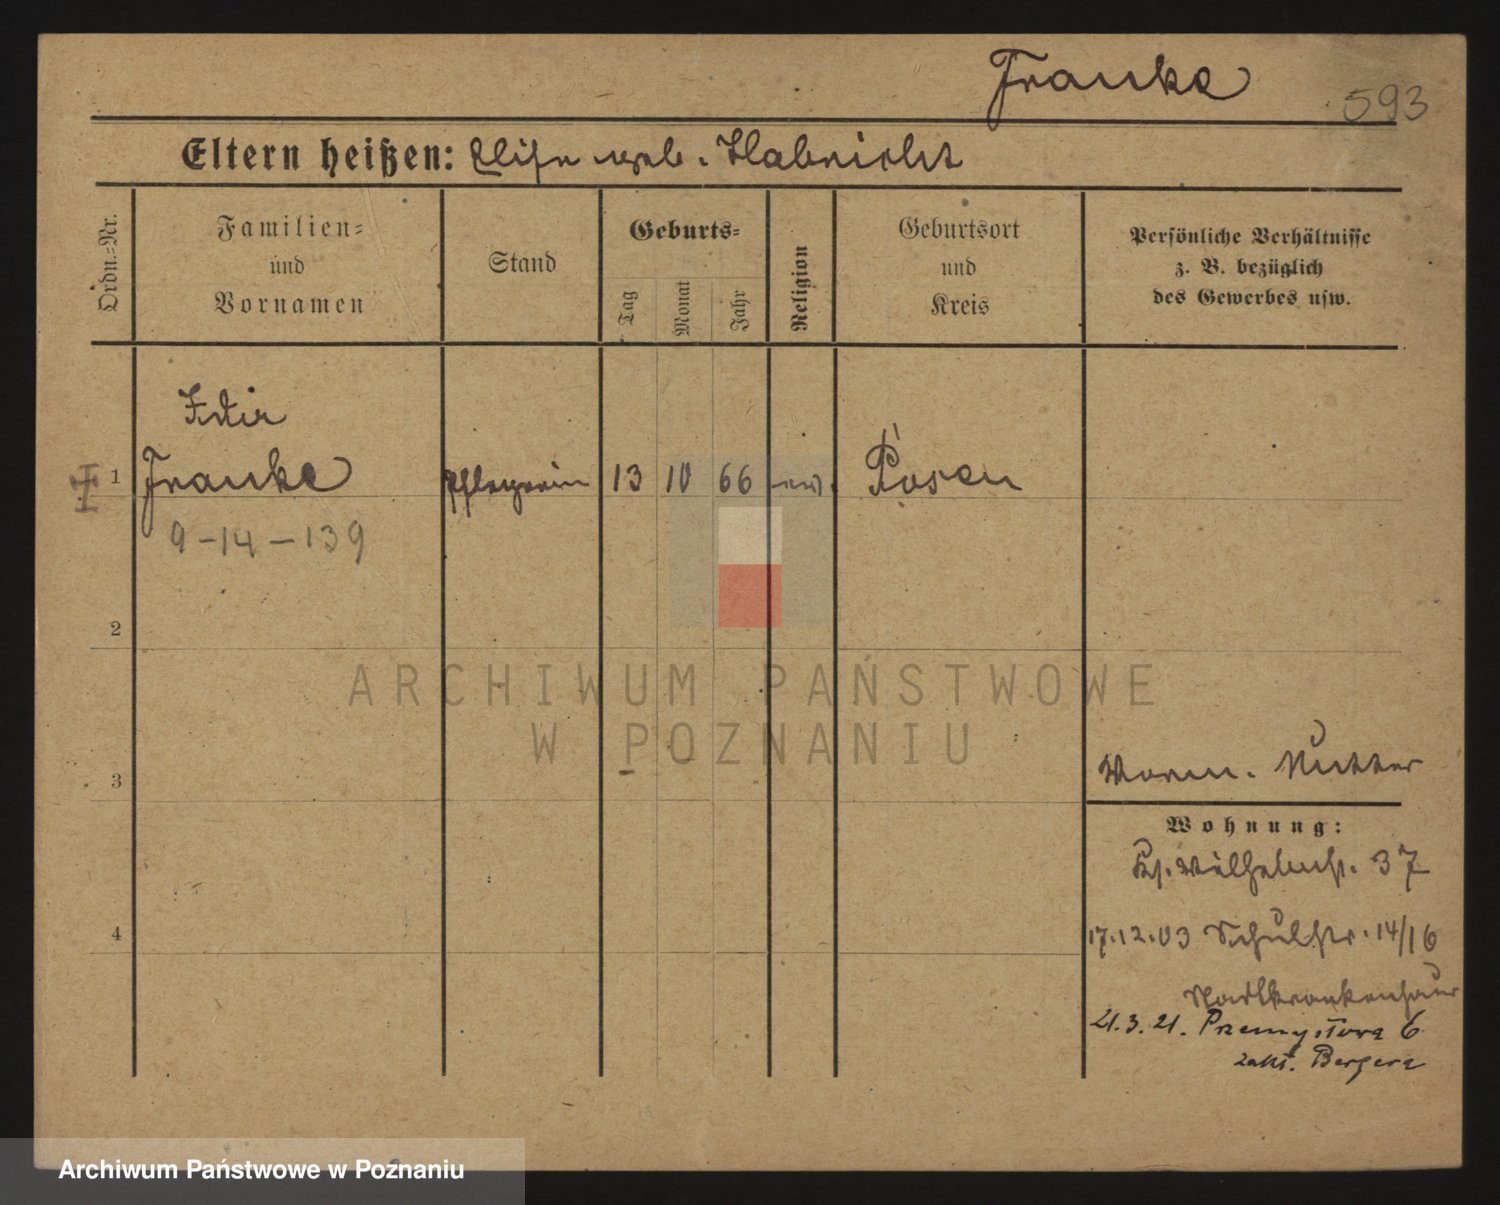 Franke
593
Eltern heißen: Elise geb. Habricht
Ordn.=Nr.
Familien=
und
Vornamen
Stand
Geburts=
Tag
Monat
Jahr
Religion
Geburtsort
und
Kreis
Persönliche Verhältnisse
z. B. bezüglich
des Gewerbes usw.
1
Franke Pflegerin 13 10 66 ev. Posen
9-14-139
2
ARCHIWUM PAŃSTWOWE
W POZNANIU
3
Mutter
Wohnung:
37
4
17.12.03 Schulstr. 14/16
Stadtkrankenhaus
21.3.21. Przemysłowa 6
zakł. Bergera
Archiwum Państwowe w Poznaniu